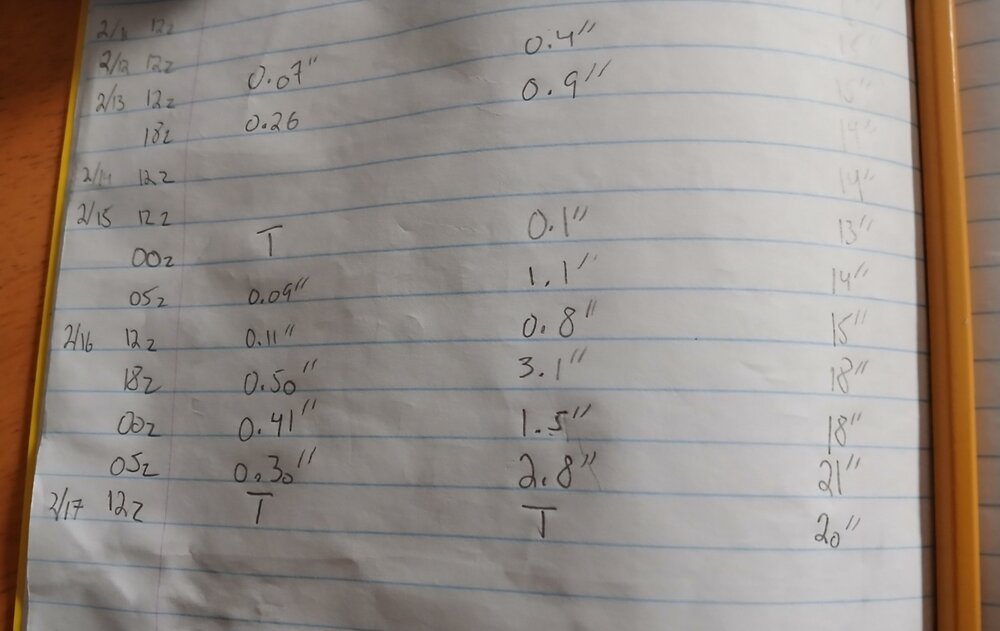 2/11 12z
2/12 12z
2/13 12z 0.07" 0.4"
18z 0.26 0.9" 15"
2/14 12z 14"
2/15 12z 14"
00z T 0.1" 13"
05z 0.09" 1.1" 14"
2/16 12z 0.11" 0.8" 15"
18z 0.50" 3.1" 18"
00z 0.41" 1.5" 18"
05z 0.30" 2.8" 21"
2/17 12z T T 20"